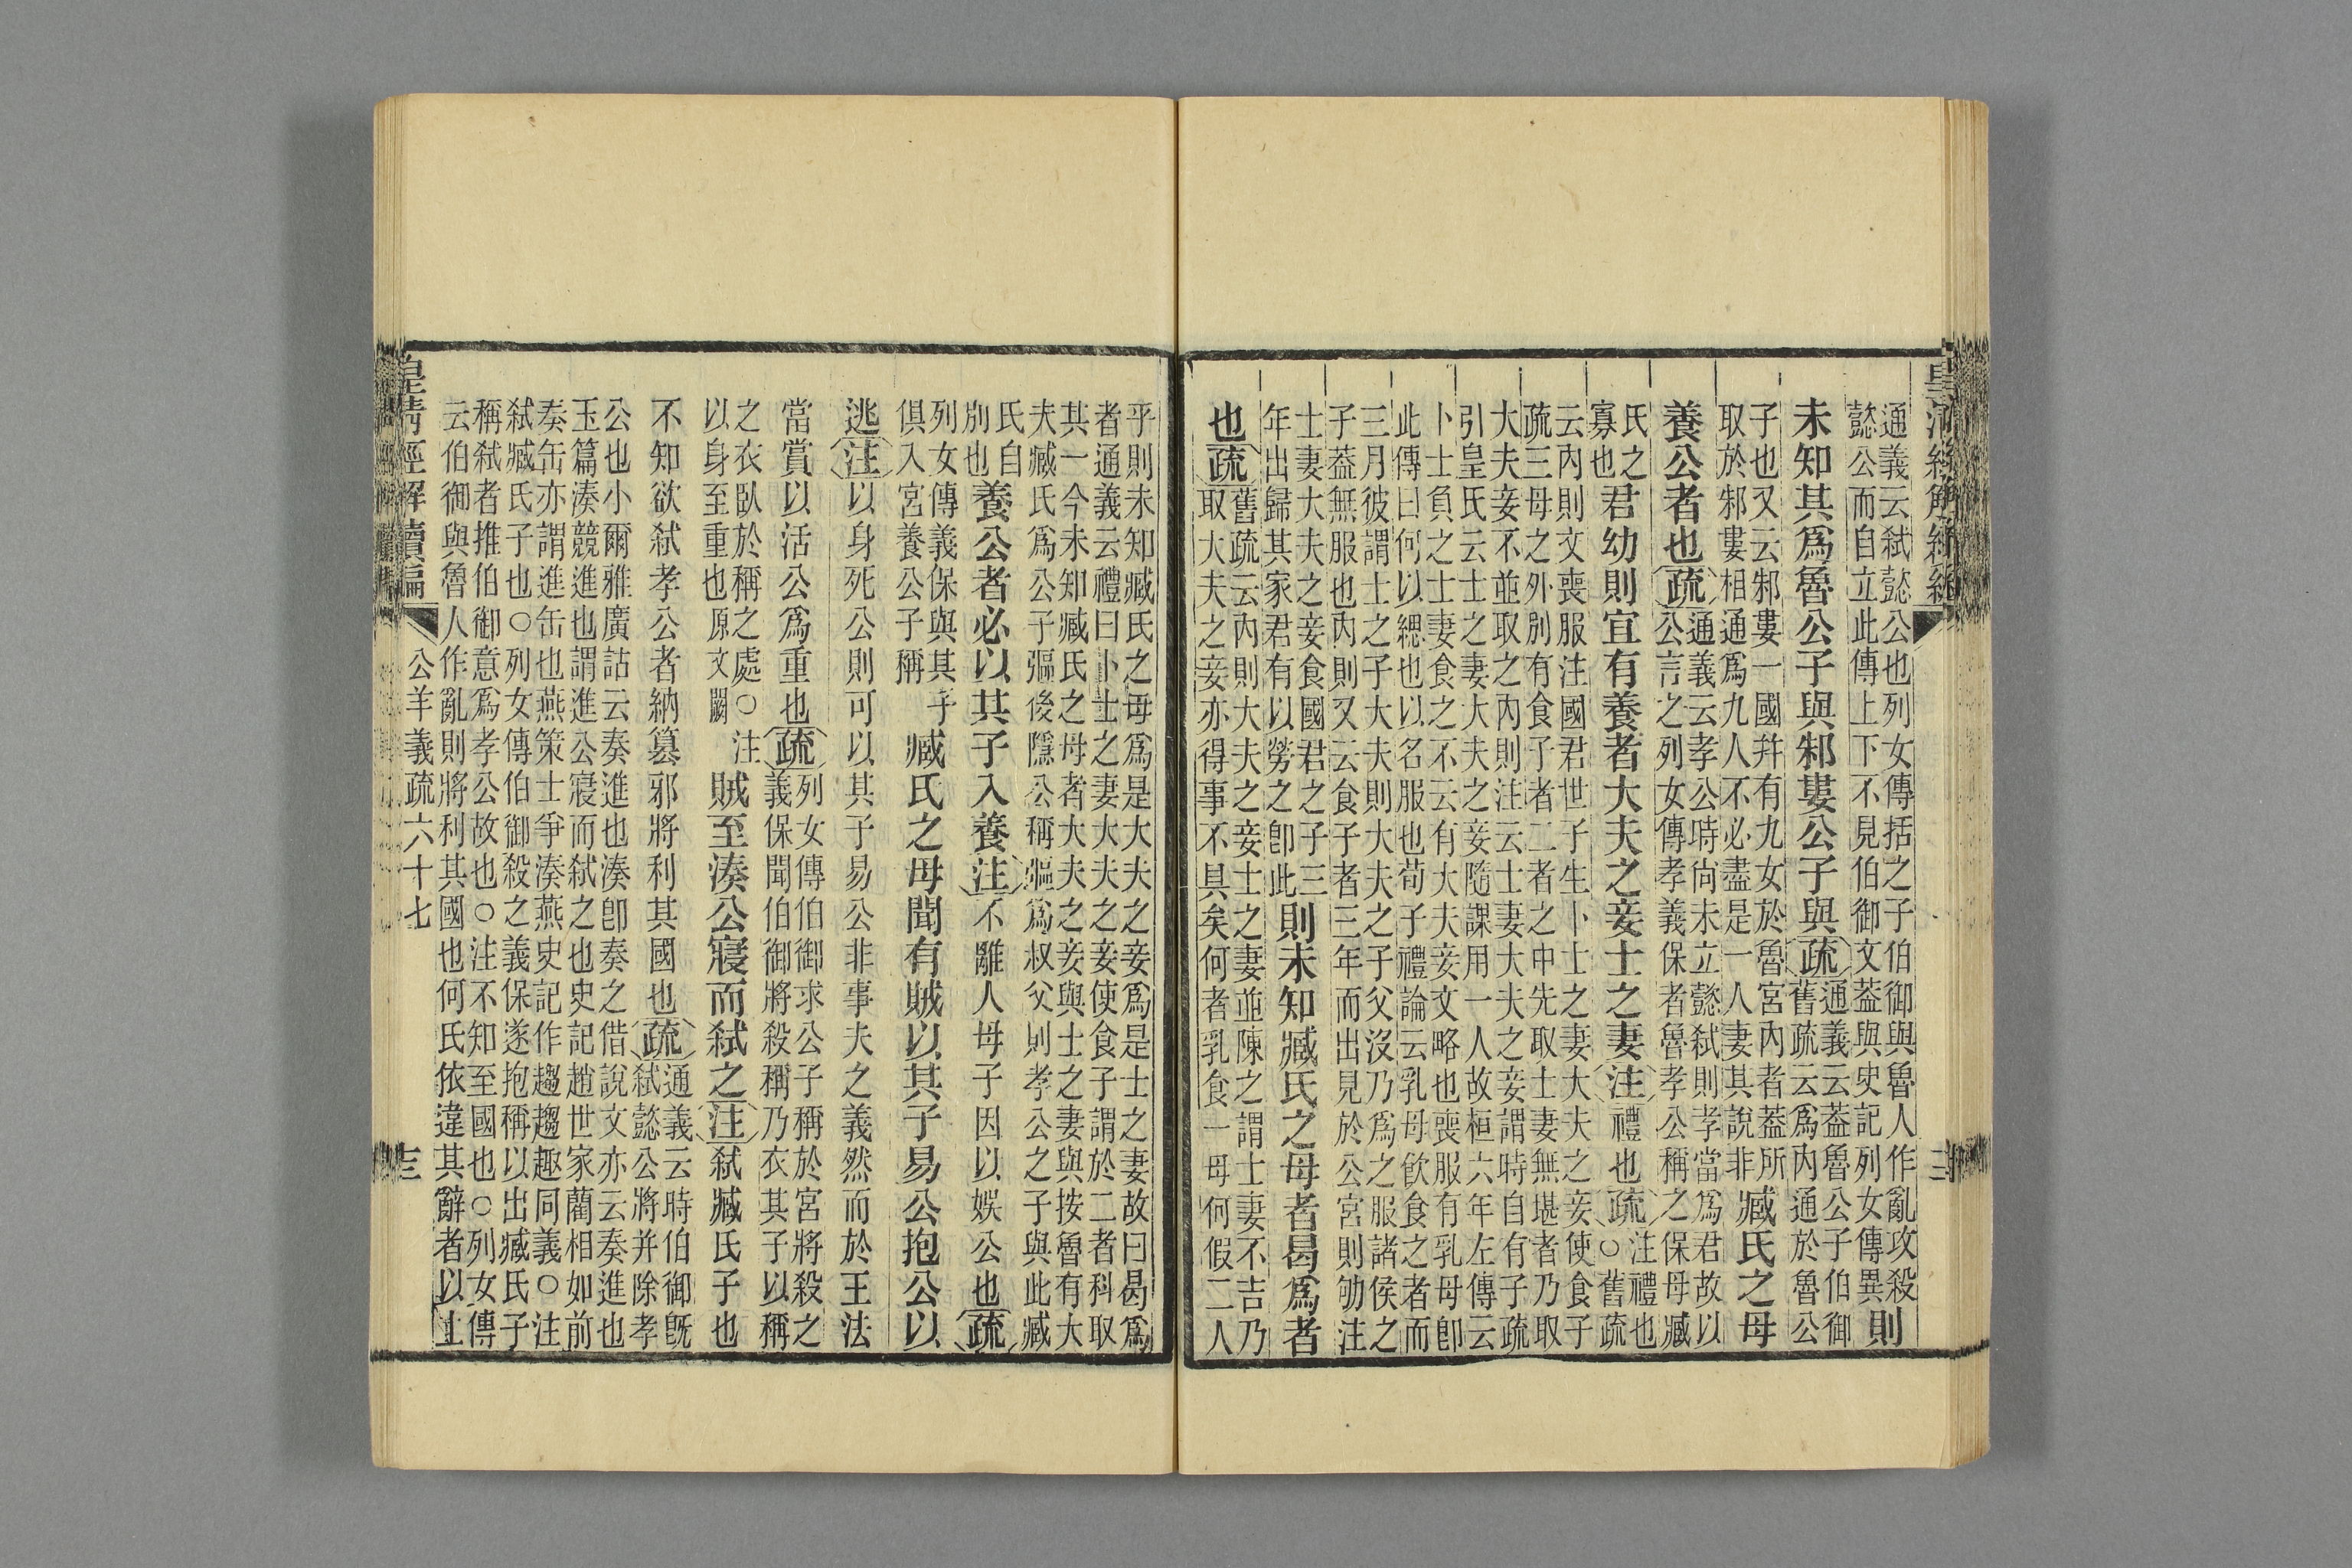 通義云弑懿公也列女傳括之子伯御與魯人作亂攻殺
懿公而自立此傳上下不見伯御文葢與史記列女傳異
則
未知其爲魯公子與邾婁公子與疏
通義云葢魯公子伯御
舊疏云爲內通於魯公
子也又云邾婁一國幷有九女於魯宮內者葢所
取於邾婁相通爲九人不必盡是一人妻其說非
臧氏之母
養公者也疏
通義云孝公時尙未立懿弑則孝當爲君故以
公言之列女傳孝義保者魯孝公稱之保母臧
氏之
寡也
君幼則宜有養者大夫之妾士之妻注禮也疏
注禮也
○舊疏
云內則文喪服注國君世子生卜士之妻大夫之妾使食子
疏三母之外別有食子者二者之中先取士妻無堪者乃取
大夫妾不並取之內則注云士妻大夫之妾謂時自有子疏
引皇氏云士之妻大夫之妾隨課用一人故桓六年左傳云
卜士負之士妻食之不云有大夫妾文略也喪服有乳母卽
此傳曰何以緦也以名服也荀子禮論云乳母飮食之者而
三月彼謂士之子大夫則大夫之子父沒乃爲之服諸侯之
子葢無服也內則又云食子者三年而出見於公宮則劬注
士妻大夫之妾食國君之子三
年出歸其家君有以勞之卽此
則未知臧氏之母者曷爲者
也疏
舊疏云內則大夫之妾士之妻並陳之謂士妻不吉乃
取大夫之妾亦得事不具矣何者乳食一母何假二人
乎則未知臧氏之母爲是大夫之妾爲是士之妻故曰曷爲
者通義云禮曰卜士之妻大夫之妾使食子謂於二者科取
其一今未知臧氏之母者大夫之妾與士之妻與按魯有大
夫臧氏爲公子彄後隱公稱彄爲叔父則孝公之子與此臧
氏自
別也
養公者必以其子入養注不離人母子因以娛公也疏
列女傳義保與其子
俱入宮養公子稱
臧氏之母聞有賊以其子易公抱公以
逃注以身死公則可以其子易公非事夫之義然而於王法
當賞以活公爲重也疏
列女傳伯御求公子稱於宮將殺之
義保聞伯御將殺稱乃衣其子以稱
之衣臥於稱之處○注
以身至重也原文闕
賊至湊公寢而弑之注弑臧氏子也
不知欲弑孝公者納簒邪將利其國也疏
通義云時伯御旣
弑懿公將并除孝
公也小爾雅廣詁云奏進也湊卽奏之借說文亦云奏進也
玉篇湊競進也謂進公寢而弑之也史記趙世家藺相如前
奏缶亦謂進缶也燕策士爭湊燕史記作趨趨趣同義○注
弑臧氏子也○列女傳伯御殺之義保遂抱稱以出臧氏子
稱弑者推伯御意爲孝公故也○注不知至國也○列女傳
云伯御與魯人作亂則將利其國也何氏依違其辭者以上
皇淸經解續編
公羊義疏六十七